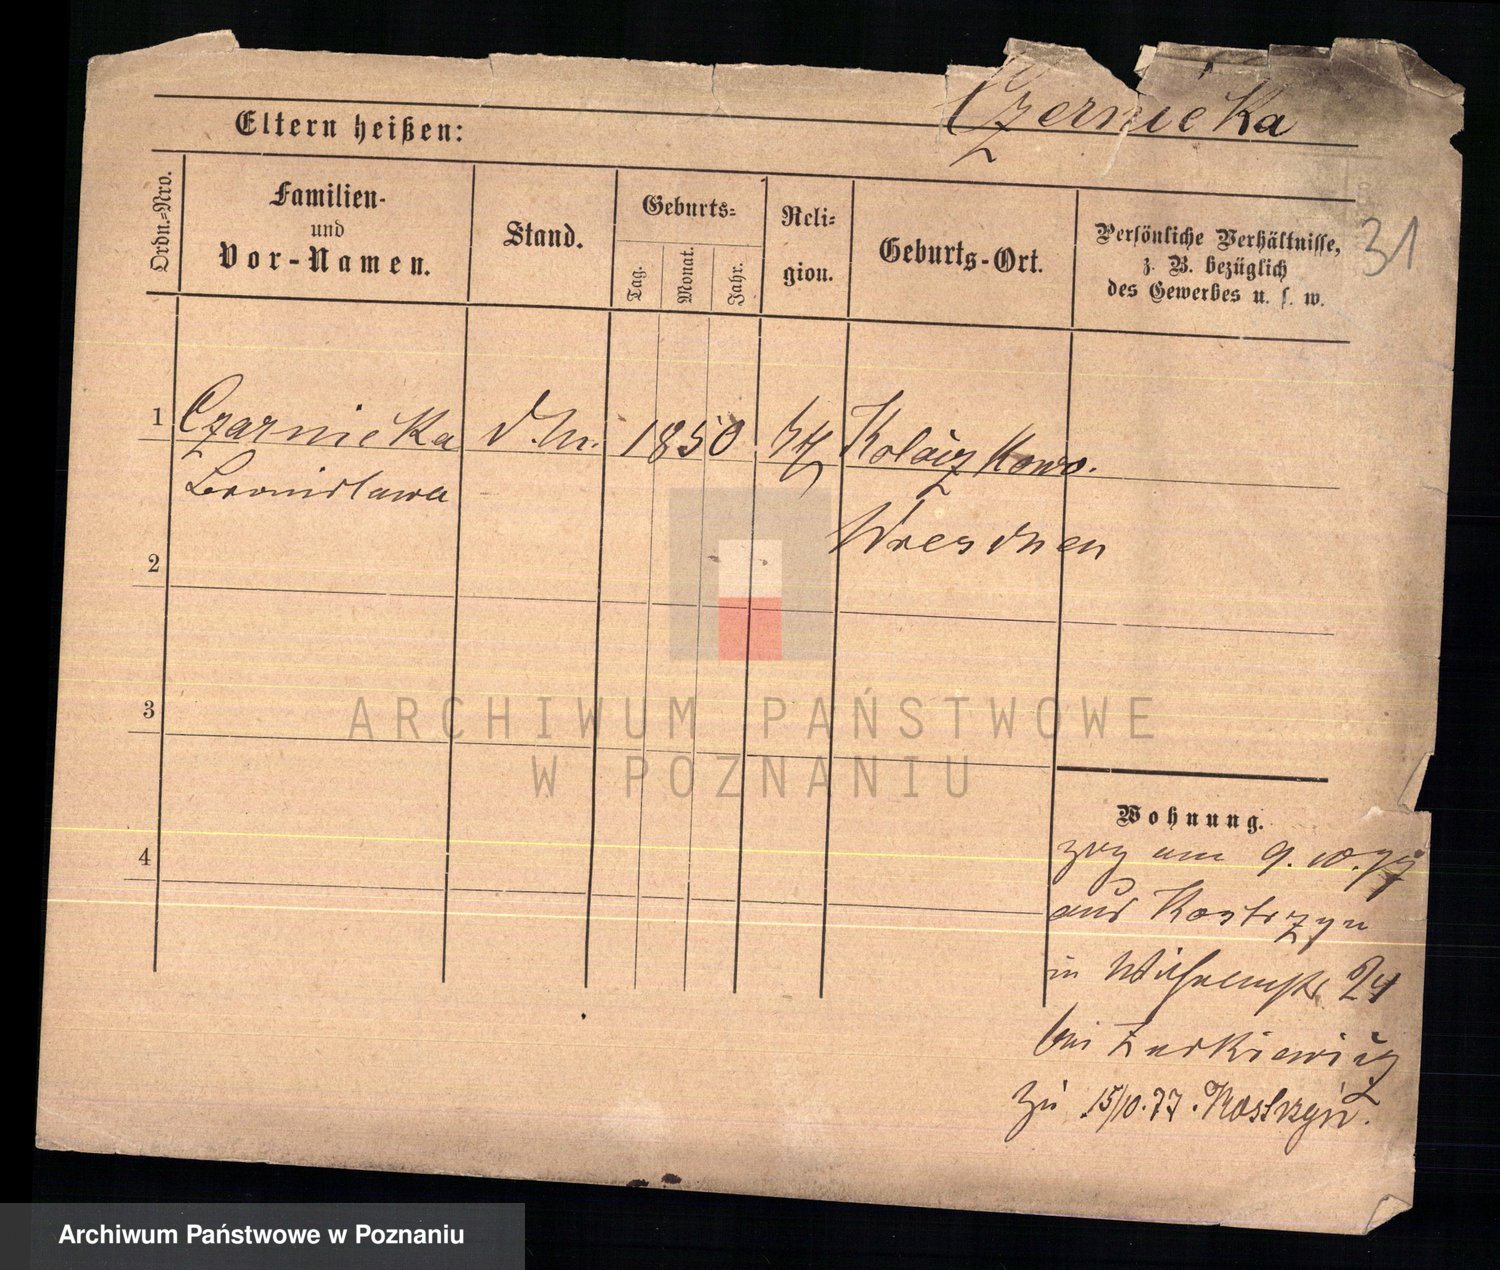 Czernicka
Eltern heißen:
Ordn.=Nro.
Familien-
und
Vor-Namen.
Stand.
Geburts=
Tag.
Monat.
Jahr.
Reli=
gion.
Geburts-Ort.
Persönliche Verhältnisse,
z. B. bezüglich
des Gewerbes u. s. w.
31
1 Czarnicka d. M. 1850 Kołaczkowo.
Bronislawa
Wreschen
2
3
4
Wohnung.
zog am 9. 10. 77
aus Kostrzyn
in Wilhelmstr 24
bei
zu 15/10. 77. Kostrzyn.
ARCHIWUM PAŃSTWOWE
W POZNANIU
Archiwum Państwowe w Poznaniu